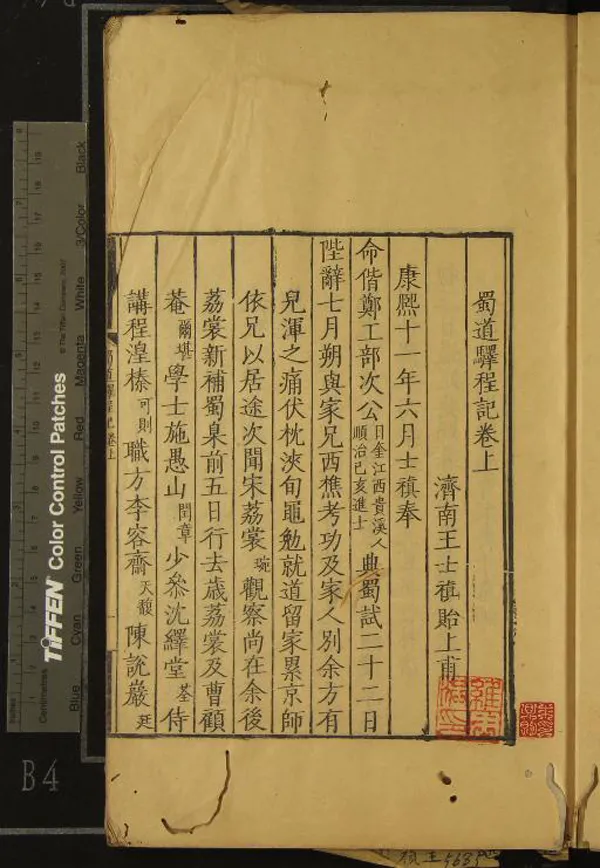 蜀道驛程記卷上
濟南王士禛貽上甫
康熙十一年六月士禛奉
命偕鄭工部次公日奎江西貴溪人順治已亥進士典蜀試二十二日
陛辭七月朔與家兄西樵考功及家人別余方有
兒渾之痛伏枕浹旬黽勉就道留家累京師
依兄以居途次聞宋荔裳琬觀察尚在余後
荔裳新補蜀臬前五日行去歲荔裳及曹顧
菴爾堪學士施愚山閏章少叅沈繹堂荃侍
講程湟榛可則職方李容齋天馥陳說巖廷
蜀道驛程記卷上
TIFFEN Color Control Patches
© The Tiffen Company, 2007
Blue
Cyan
Green
Yellow
Red
Magenta
White
3/Color
Black
Centimetres
B4